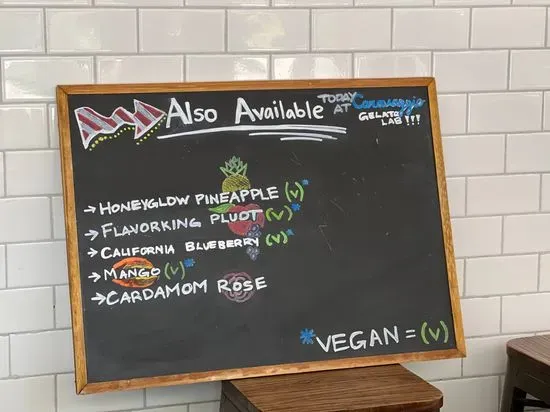 Also Available TODAY AT Caravaggio GELATO LAB!!!
→ HONEYGLOW PINEAPPLE (v)*
→ FLAVORKING PLUOT (v)*
→ CALIFORNIA BLUEBERRY (v)*
→ MANGO (v)*
→ CARDAMOM ROSE
*VEGAN = (v)